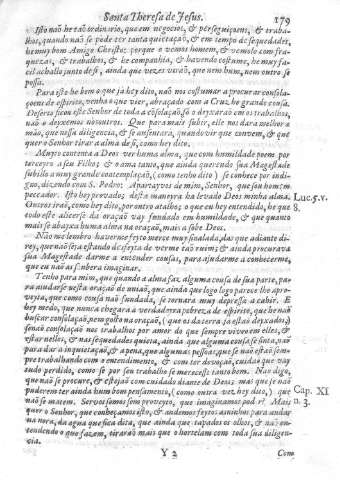 Santa Theresa de Jesus. 179
Isto não he tão ordinario, que em negocios, & perseguiçoens, & traba-
lhos, quando não se póde ter tanta quietação, & em tempo de sequedades,
he muy bom Amigo Christo: porque o vemos homem, & vemolo com fra-
quezas, & trabalhos, & he companhia, & havendo costume, he muy fa-
cil achallo junto de si, ainda que vezes virão, que nem hum, nem outro se
possa.
Para isto he bem o que ja hey dito, não nos costumar a procurar consola-
çoens de espirito, venha o que vier, abraçado com a Cruz, he grande cousa.
Deserto ficou este Senhor de toda a consolação só o deixarão em os trabalhos,
não o deixemos nósoutros. Que para mais subir, elle nos dará melhor a
mão, que nossa diligencia, & se ausentará, quando vir que convem, & que
quer o Senhor tirar a alma de si, como hey dito.
Muyto contenta a Deos ver huma alma, que com humildade poem por
terceyro a seu Filho; & o ama tanto, que ainda querendo sua Magestade
subilo a muy grande contemplação, (como tenho dito) se conhece por indi-
gno, dizendo com S. Pedro: Apartayvos de mim, Senhor, que sou homem
peccador. Isto hey provado: desta maneyra ha levado Deos minha alma.
Luc. 5. v.
8.
Outros irão, como hey dito, por outro atalho; o que eu hey entendido, he que
todo este alicerse da oração vay fundado em humildade, & que quanto
mais se abayxa huma alma na oração, mais a sobe Deos.
Não me lembro haverme feyto mercè muy sinalada, das que adiante di-
rey, que não seja estando desfeyta de verme tão ruim; & ainda procurava
sua Magestade darme a entender cousas, para ajudarme a conhecerme,
que eu não as soubera imaginar.
Tenho para mim, que quando a alma faz alguma cousa de sua parte, pa-
ra ajudarse nesta oração de união, que ainda que logo logo parece lhe apro-
veyta, que como cousa não fundada, se tornará muy depressa a cahir. E
hey medo, que nunca chegará a verdadeyra pobreza de espirito, que he não
buscar consolação, nem gosto na oração, (que os da terra já estaõ deyxados)
senaõ consolação nos trabalhos por amor do que sempre viveo em elles, &
estar nelles, & nas sequedades quieta, ainda que alguma cousa se sinta, não
para dar a inquietação, & a pena, que algumas pessoas, que se não estaõ sem-
pre trabalhando com o entendimento, & com ter devoção, cuidão que vay
tudo perdido, como se por seu trabalho se merecesse tanto bem. Não digo,
que não se procure, & estejaõ com cuidado diante de Deos: mas que se não
puderem ter ainda hum bom pensamento, (como outra vez hey dito) que
Cap. XI
n. 3.
não se matem. Servos somos sem proveyto, que imaginamos poder? Mais
quer o Senhor, que conheçamos isto, & andemos feytos asninhos para andar
na nora, da agua que fica dita, que ainda que tapados os olhos, & não en-
tendendo o que fazem, tiraráõ mais que o hortelam com toda sua diligen-
cia.
Y 2 Com